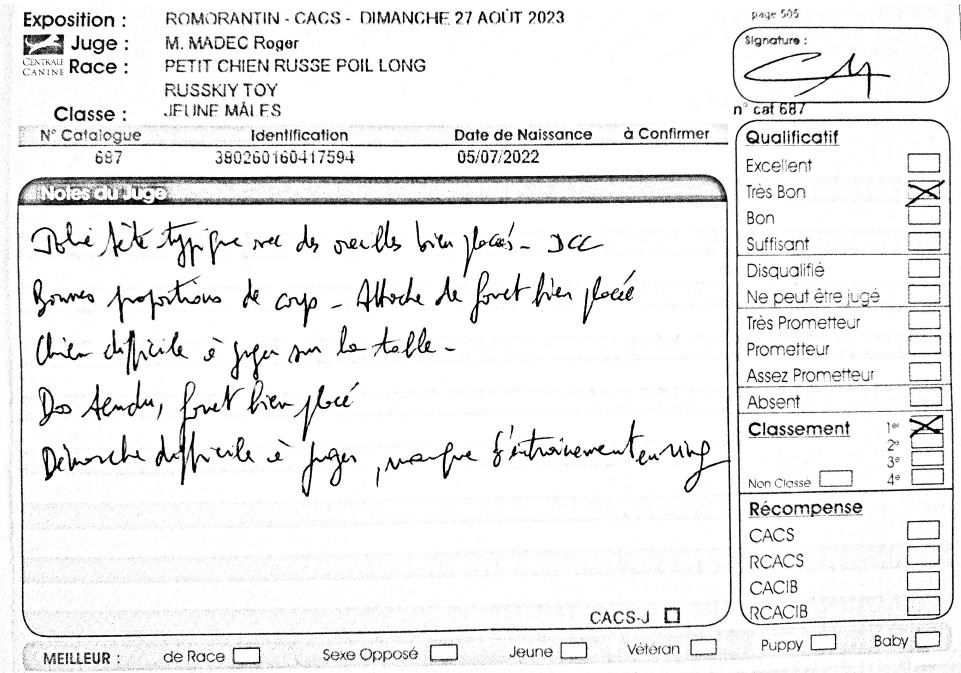 Exposition : ROMORANTIN - CACS - DIMANCHE 27 AOÛT 2023
page 505
Juge : M. MADEC Roger
Signature :
CENTRALE CANINE
Race : PETIT CHIEN RUSSE POIL LONG
RUSSKIY TOY
Classe : JEUNE MÂLES
n° cat 687
N° Catalogue Identification Date de Naissance à Confirmer
687 380260160417594 05/07/2022
Notes du Juge
Jolie tête typique avec des oreilles bien placés - DCC
Bonnes proportions de corps - Attache de fouet bien placée
Chien difficile à juger sur la table -
Dos tendu, fouet bien placé
Démarche difficile à juger, manque d'entrainement en ring
CACS-J
Qualificatif
Excellent
Très Bon
Bon
Suffisant
Disqualifié
Ne peut être jugé
Très Prometteur
Prometteur
Assez Prometteur
Absent
Classement 1er
2e
3e
Non Classé 4e
Récompense
CACS
RCACS
CACIB
RCACIB
MEILLEUR : de Race Sexe Opposé Jeune Vétéran Puppy Baby